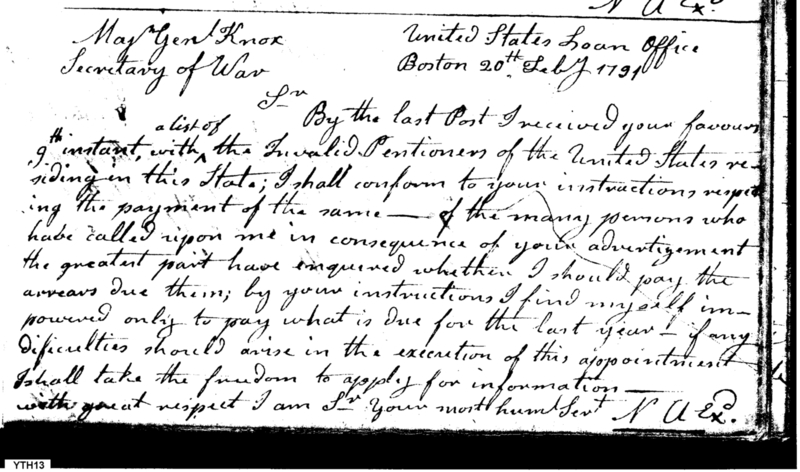 N A Exd.
Majr. Genl. Knox
United States Loan Office
Secretary of War
Boston 20th. Feby 1791
Sr
By the last Post I received your favour
9th instant, with a list of the Invalid Pentioners of the United States re-
siding in this State; I shall conform to your instructions respect
ing the payment of the same — of the many persons who
have called upon me in consequence of your advertizement
the greatest part have enquered whether I should pay the
arrears due them; by your instructions I find myself im-
powered only to pay what is due for the last year — if any
dificulties should arise in the execretion of this appointment
I shall take the freedom to apply for information —
with great respect I am Sr. Your most huml. Servt
N A Exd.
YTH13